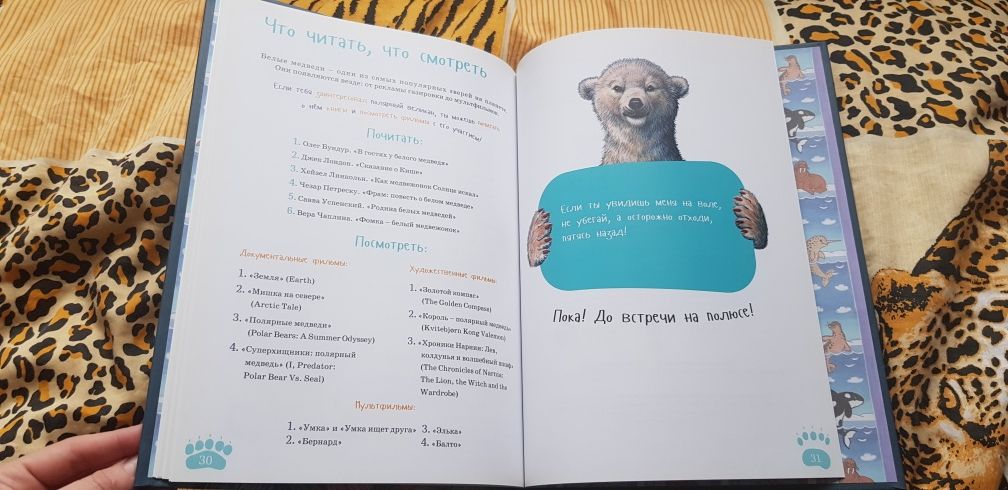 Что читать, что смотреть
Белые медведи – одни из самых популярных зверей на планете.
Они появляются везде: от рекламы газировки до мультфильмов.
Если тебя заинтересовал полярный великан, ты можешь почитать
о нём книги и посмотреть фильмы с его участием!
Почитать:
1. Олег Бундур. «В гостях у белого медведя»
2. Джек Лондон. «Сказание о Кише»
3. Хейзел Линкольн. «Как медвежонок Солнце искал»
4. Чезар Петреску. «Фрам: повесть о белом медведе»
5. Савва Успенский. «Родина белых медведей»
6. Вера Чаплина. «Фомка – белый медвежонок»
Посмотреть:
Документальные фильмы:
1. «Земля» (Earth)
2. «Мишка на севере»
(Arctic Tale)
3. «Полярные медведи»
(Polar Bears: A Summer Odyssey)
4. «Суперхищники: полярный
медведь» (I, Predator:
Polar Bear Vs. Seal)
Художественные фильмы:
1. «Золотой компас»
(The Golden Compass)
2. «Король – полярный медведь»
(Kvitebjørn Kong Valemon)
3. «Хроники Нарнии: Лев,
колдунья и волшебный шкаф»
(The Chronicles of Narnia:
The Lion, the Witch and the
Wardrobe)
Мультфильмы:
1. «Умка» и «Умка ищет друга»
2. «Бернард»
3. «Элька»
4. «Балто»
30
Если ты увидишь меня на воле,
не убегай, а осторожно отходи,
пятясь назад!
Пока! До встречи на полюсе!
31